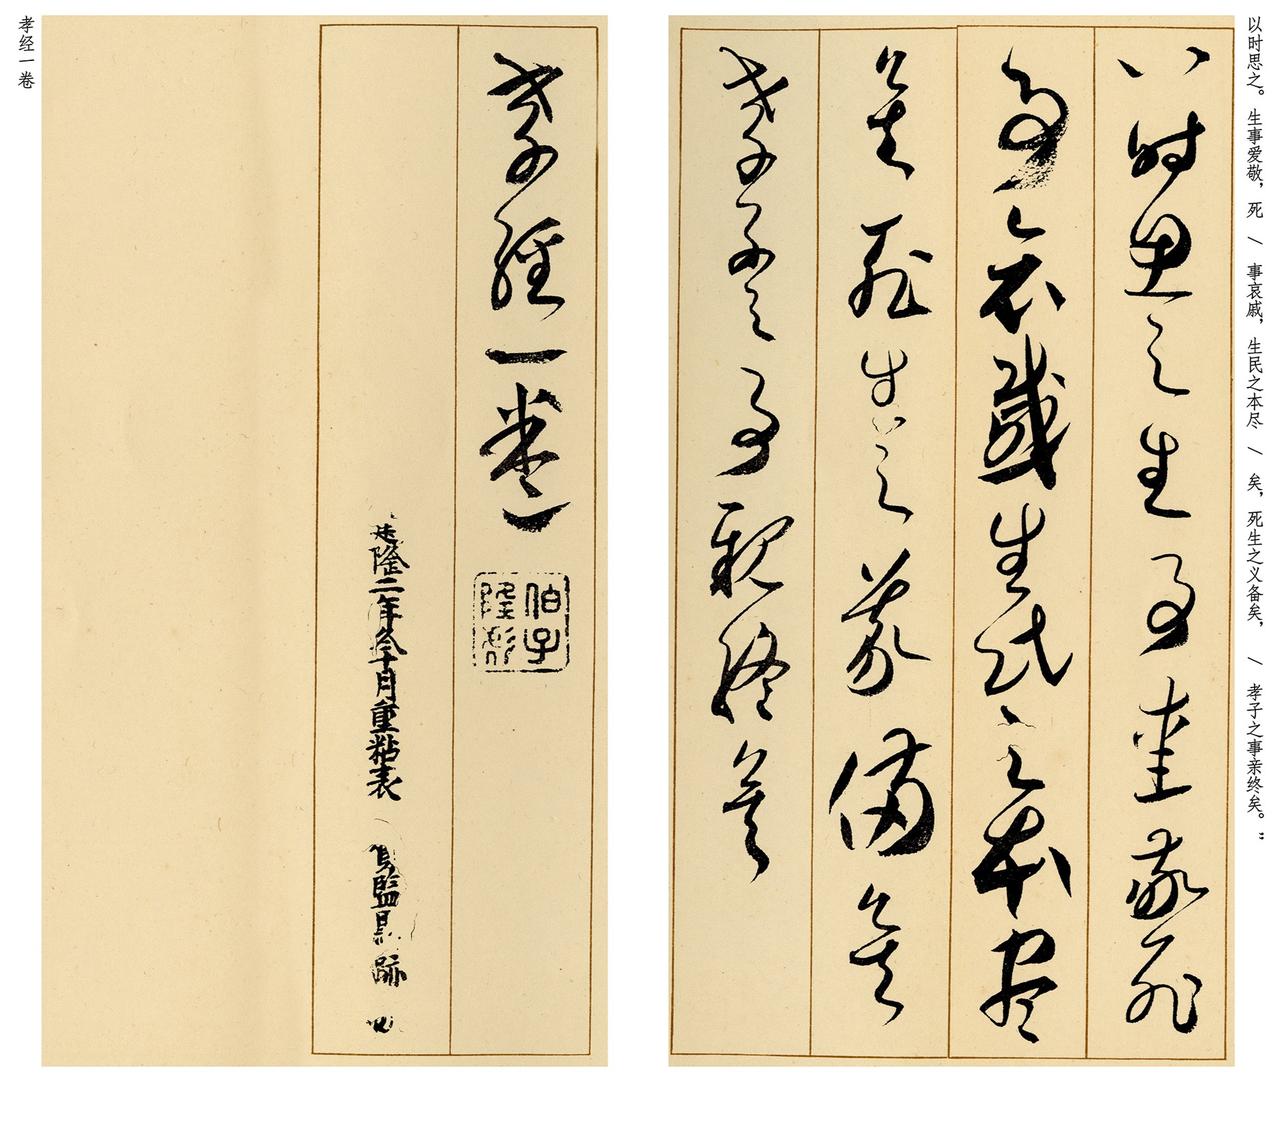 以时思之。生事爱敬，死 \ 事哀戚，生民之本尽 \ 矣，死生之义备矣， \ 孝子之事亲终矣。”
以時思之生事愛敬死
事哀慼生民之本盡
矣死生之義備矣
孝子之事親終矣
孝經一卷
建隆二年冬十月重粘表 賀監墨跡
孝经一卷